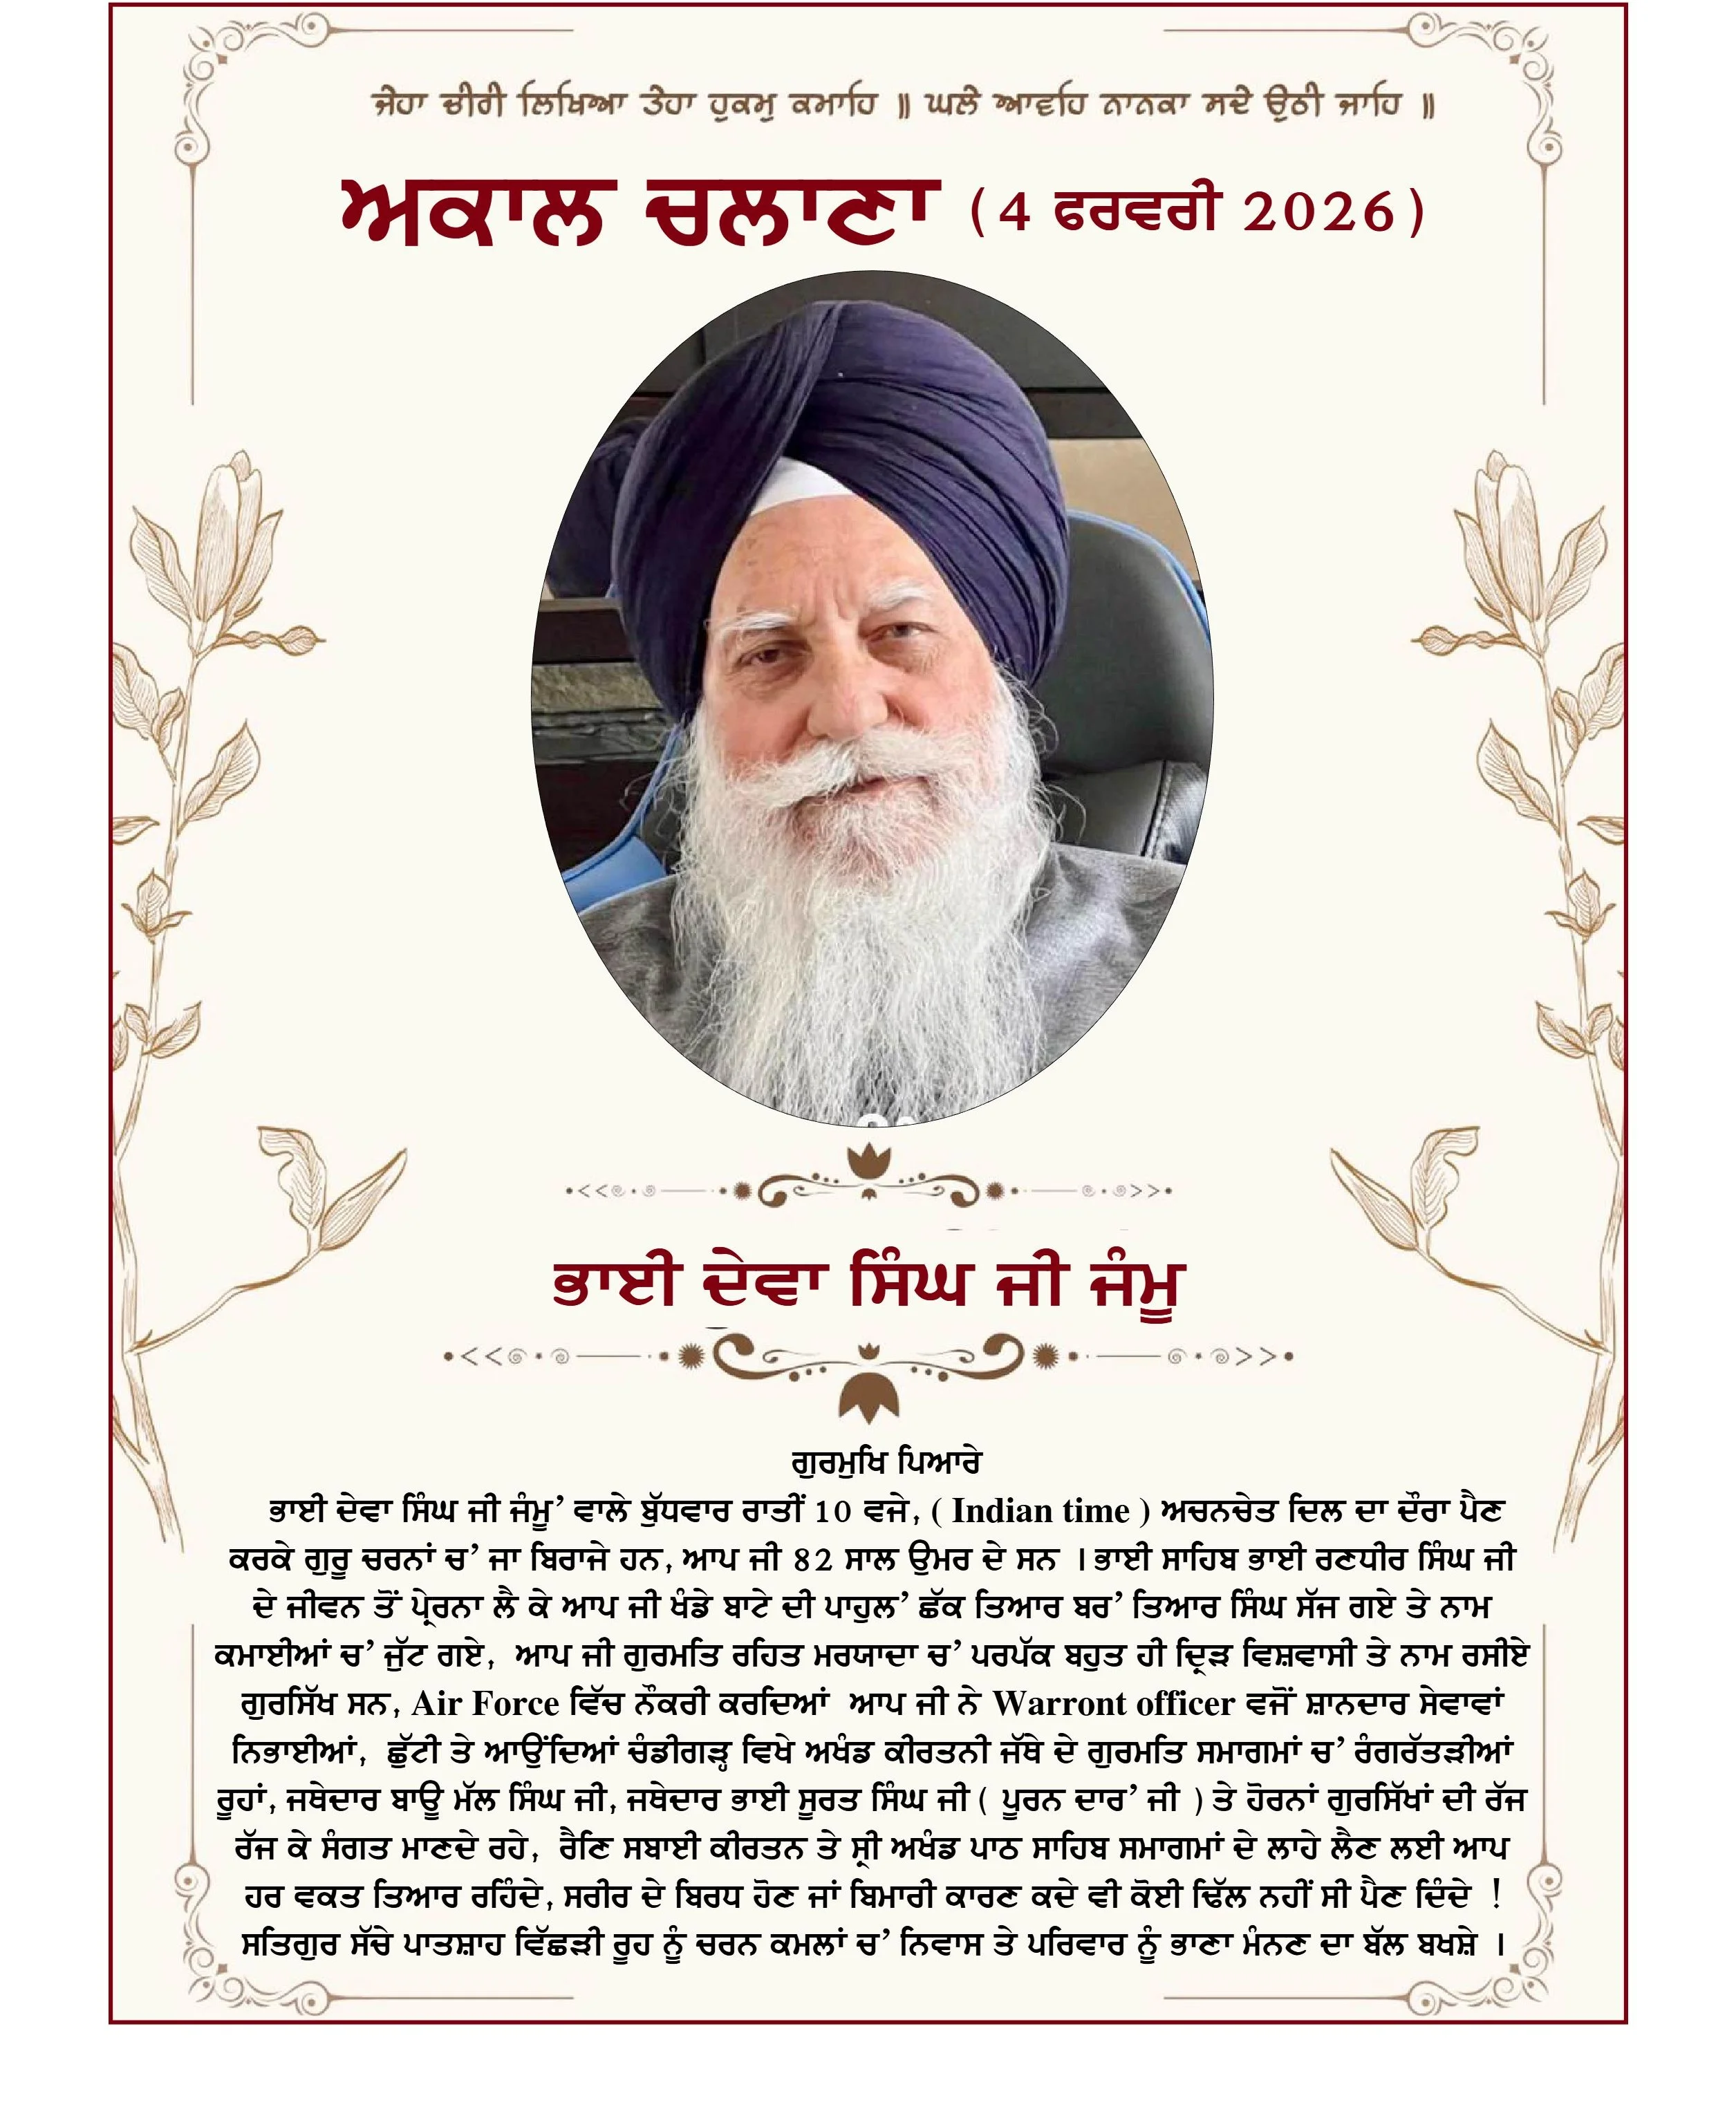 ਜੇਹਾ ਚੀਰੀ ਲਿਖਿਆ ਤੇਹਾ ਹੁਕਮੁ ਕਮਾਹਿ ॥ ਘਲੇ ਆਵਹਿ ਨਾਨਕਾ ਸਦੇ ਉਠੀ ਜਾਹਿ ॥
ਅਕਾਲ ਚਲਾਣਾ (4 ਫਰਵਰੀ 2026)
ਭਾਈ ਦੇਵਾ ਸਿੰਘ ਜੀ ਜੰਮੂ
ਗੁਰਮੁਖਿ ਪਿਆਰੇ
ਭਾਈ ਦੇਵਾ ਸਿੰਘ ਜੀ ਜੰਮੂ’ ਵਾਲੇ ਬੁੱਧਵਾਰ ਰਾਤੀਂ 10 ਵਜੇ, ( Indian time ) ਅਚਨਚੇਤ ਦਿਲ ਦਾ ਦੌਰਾ ਪੈਣ
ਕਰਕੇ ਗੁਰੂ ਚਰਨਾਂ ਚ’ ਜਾ ਬਿਰਾਜੇ ਹਨ, ਆਪ ਜੀ 82 ਸਾਲ ਉਮਰ ਦੇ ਸਨ । ਭਾਈ ਸਾਹਿਬ ਭਾਈ ਰਣਧੀਰ ਸਿੰਘ ਜੀ
ਦੇ ਜੀਵਨ ਤੋਂ ਪ੍ਰੇਰਨਾ ਲੈ ਕੇ ਆਪ ਜੀ ਖੰਡੇ ਬਾਟੇ ਦੀ ਪਾਹੁਲ’ ਛੱਕ ਤਿਆਰ ਬਰ’ ਤਿਆਰ ਸਿੰਘ ਸੱਜ ਗਏ ਤੇ ਨਾਮ
ਕਮਾਈਆਂ ਚ’ ਜੁੱਟ ਗਏ, ਆਪ ਜੀ ਗੁਰਮਤਿ ਰਹਿਤ ਮਰਯਾਦਾ ਚ’ ਪਰਪੱਕ ਬਹੁਤ ਹੀ ਦ੍ਰਿੜ ਵਿਸ਼ਵਾਸੀ ਤੇ ਨਾਮ ਰਸੀਏ
ਗੁਰਸਿੱਖ ਸਨ, Air Force ਵਿੱਚ ਨੌਕਰੀ ਕਰਦਿਆਂ ਆਪ ਜੀ ਨੇ Warront officer ਵਜੋਂ ਸ਼ਾਨਦਾਰ ਸੇਵਾਵਾਂ
ਨਿਭਾਈਆਂ, ਛੁੱਟੀ ਤੇ ਆਉਂਦਿਆਂ ਚੰਡੀਗੜ੍ਹ ਵਿਖੇ ਅਖੰਡ ਕੀਰਤਨੀ ਜੱਥੇ ਦੇ ਗੁਰਮਤਿ ਸਮਾਗਮਾਂ ਚ’ ਰੰਗਰੱਤੜੀਆਂ
ਰੂਹਾਂ, ਜਥੇਦਾਰ ਬਾਊ ਮੱਲ ਸਿੰਘ ਜੀ, ਜਥੇਦਾਰ ਭਾਈ ਸੂਰਤ ਸਿੰਘ ਜੀ ( ਪੂਰਨ ਦਾਰ’ ਜੀ ) ਤੇ ਹੋਰਨਾਂ ਗੁਰਸਿੱਖਾਂ ਦੀ ਰੱਜ
ਰੱਜ ਕੇ ਸੰਗਤ ਮਾਣਦੇ ਰਹੇ, ਰੈਣਿ ਸਬਾਈ ਕੀਰਤਨ ਤੇ ਸ੍ਰੀ ਅਖੰਡ ਪਾਠ ਸਾਹਿਬ ਸਮਾਗਮਾਂ ਦੇ ਲਾਹੇ ਲੈਣ ਲਈ ਆਪ
ਹਰ ਵਕਤ ਤਿਆਰ ਰਹਿੰਦੇ, ਸਰੀਰ ਦੇ ਬਿਰਧ ਹੋਣ ਜਾਂ ਬਿਮਾਰੀ ਕਾਰਣ ਕਦੇ ਵੀ ਕੋਈ ਢਿੱਲ ਨਹੀਂ ਸੀ ਪੈਣ ਦਿੰਦੇ !
ਸਤਿਗੁਰ ਸੱਚੇ ਪਾਤਸ਼ਾਹ ਵਿੱਛੜੀ ਰੂਹ ਨੂੰ ਚਰਨ ਕਮਲਾਂ ਚ’ ਨਿਵਾਸ ਤੇ ਪਰਿਵਾਰ ਨੂੰ ਭਾਣਾ ਮੰਨਣ ਦਾ ਬੱਲ ਬਖਸ਼ੇ ।